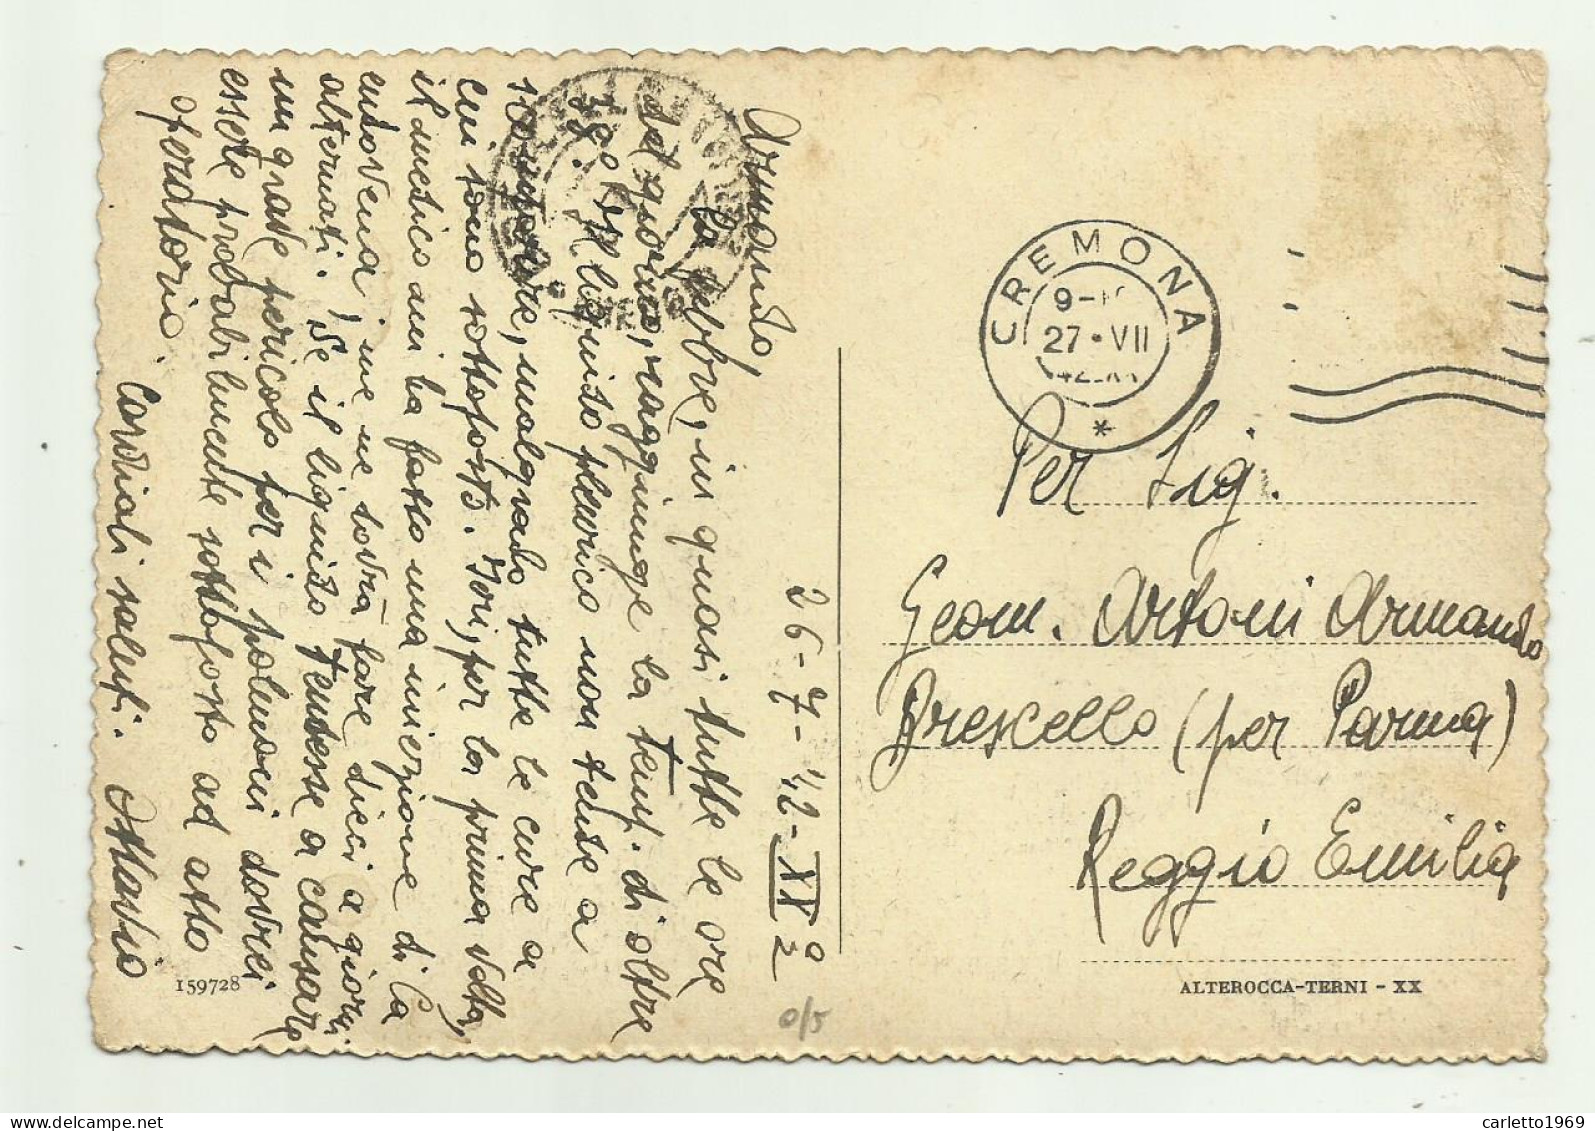 26-7-42-XX°
2
Armando,
la febbre, in quasi tutte le ore
del giorno, raggiunge la temp. di oltre
38°. Il liquido pleurico non tende a
scomparire, malgrado tutte le cure a
cui sono sottoposto. Ieri, per la prima volta,
il medico mi ha fatto una iniezione di Ca
endovena; me ne dovrà fare dieci a giorni
alternati. Se il liquido tendesse a causare
un grave pericolo per i polmoni dovrei
essere probabilmente sottoposto ad atto
operatorio.
Cordiali saluti. Ottavio
159728
0/5
CREMONA
27·VII
*
Per Sig.
Geom. Artoni Armando
Brescello (per Parma)
Reggio Emilia
ALTEROCCA-TERNI - XX
carletto1969